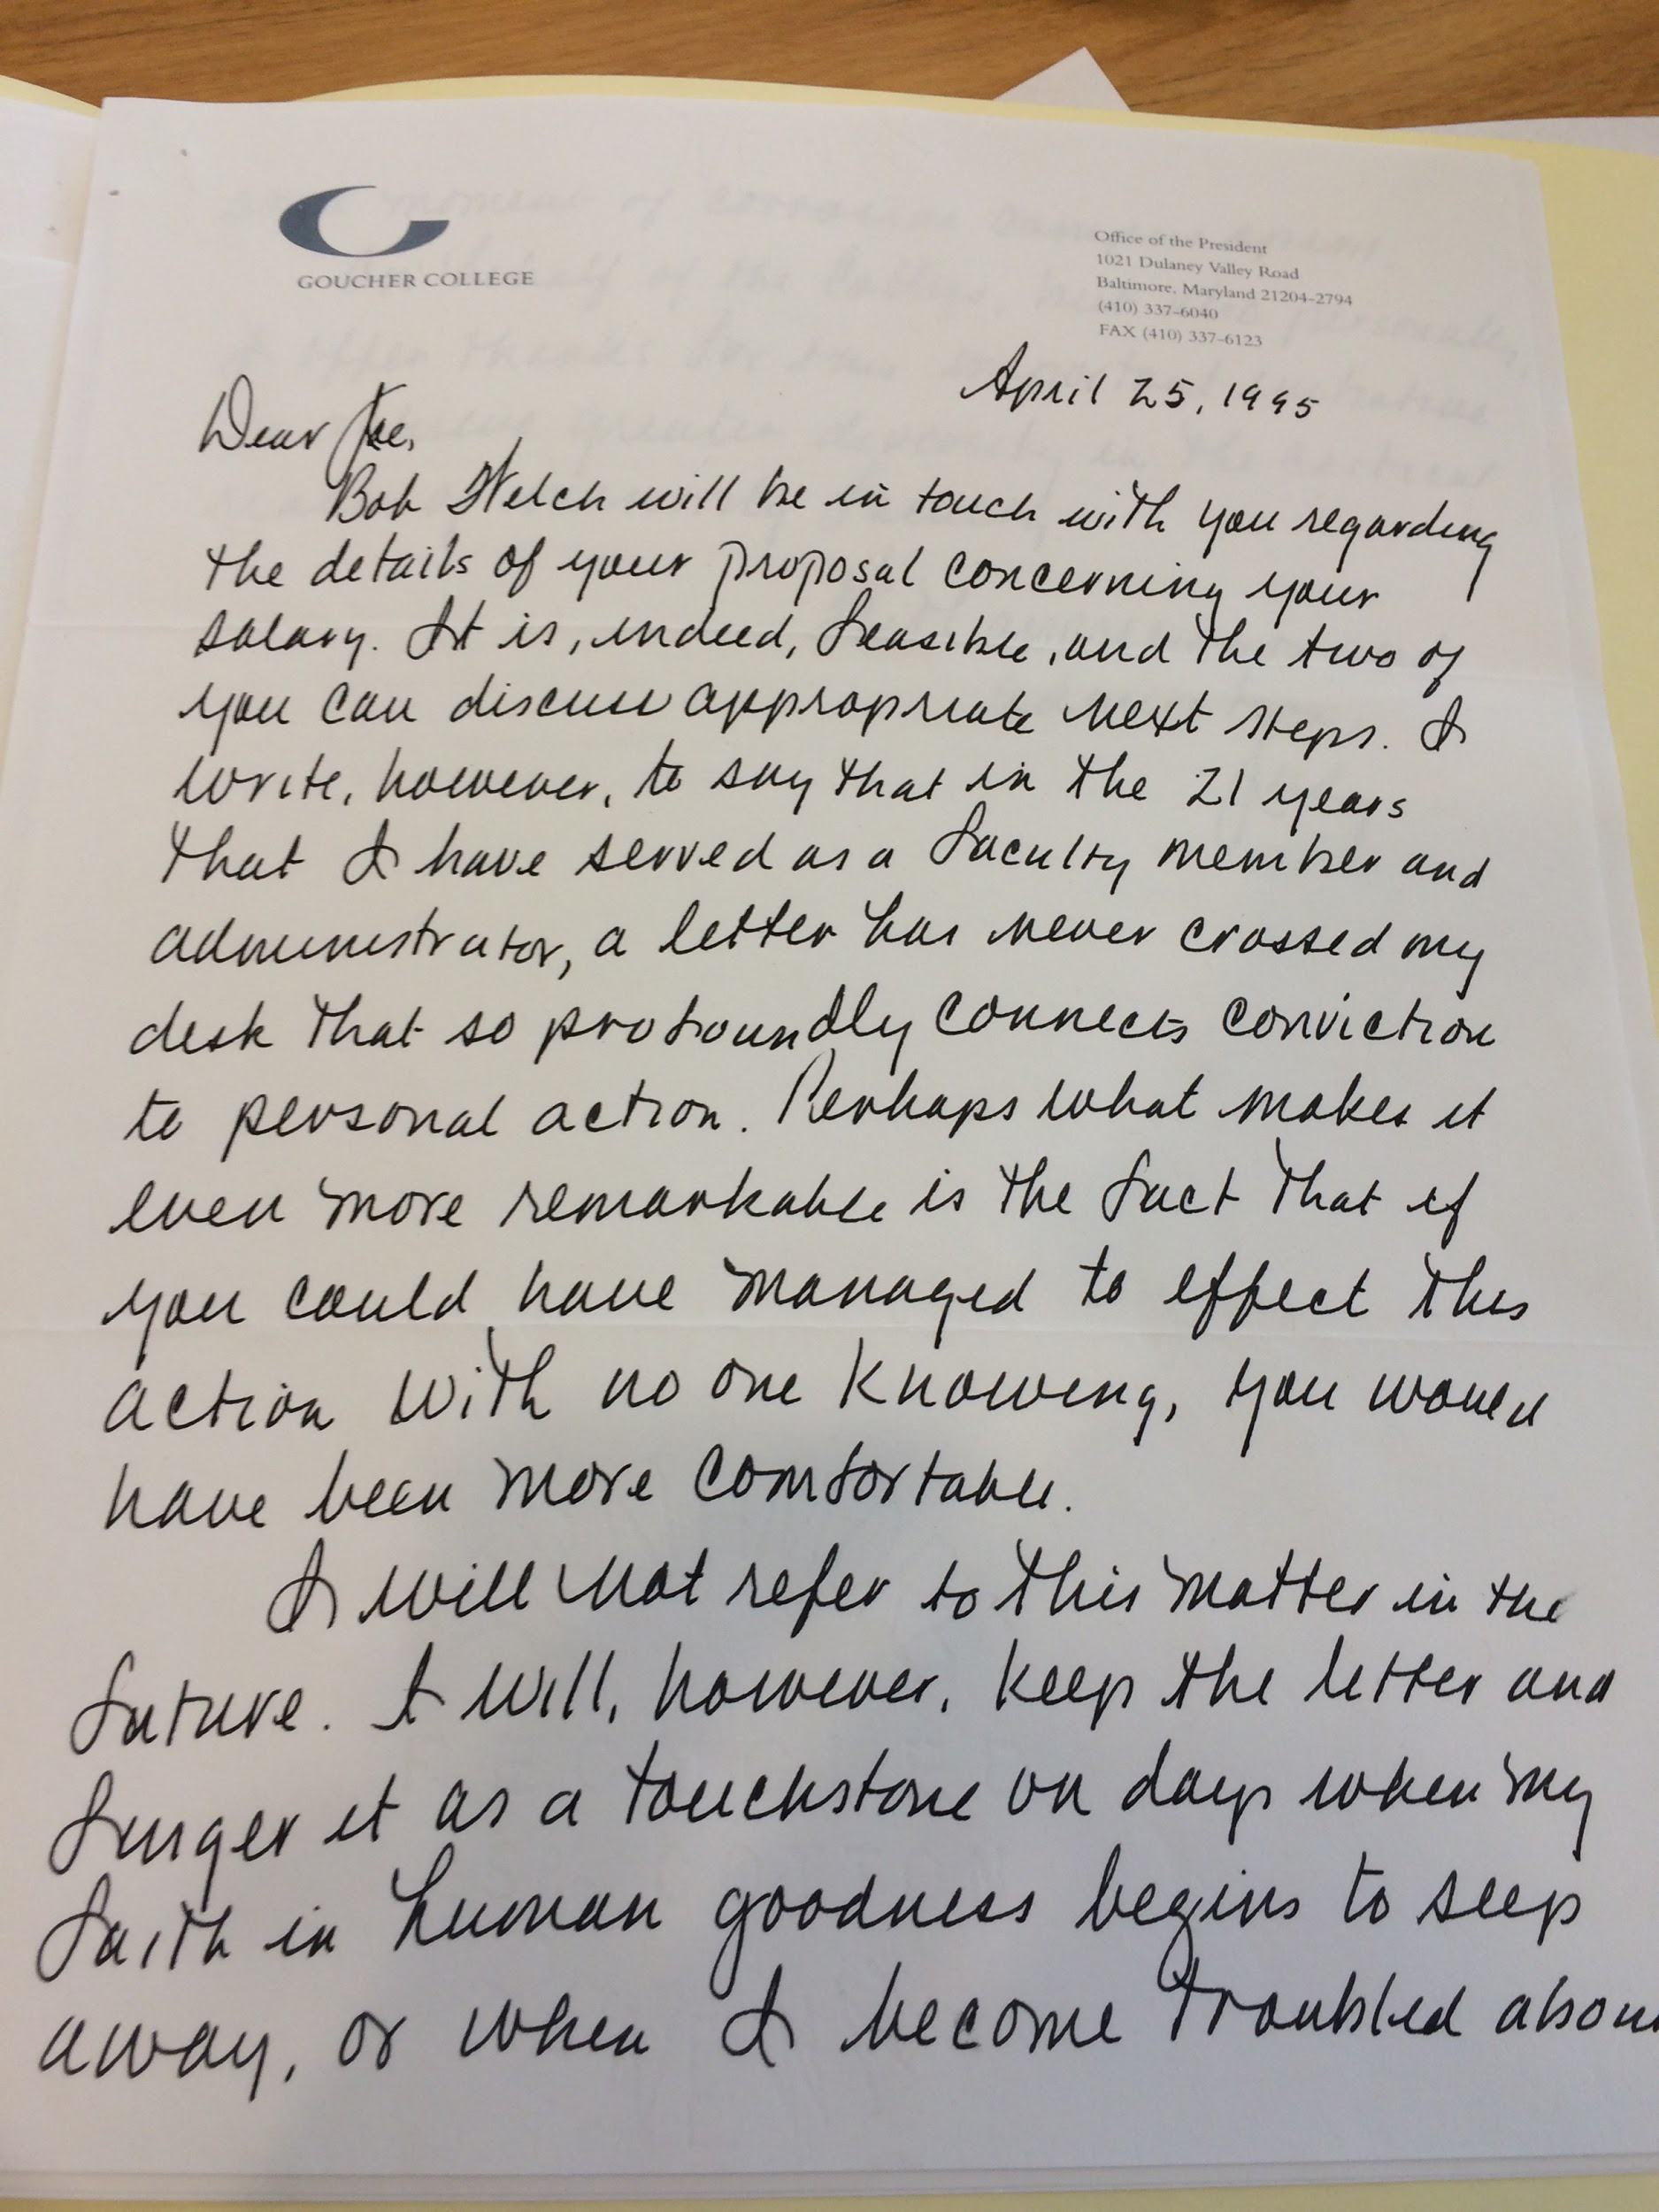 GOUCHER COLLEGE
Office of the President
1021 Dulaney Valley Road
Baltimore, Maryland 21204-2794
(410) 337-6040
FAX (410) 337-6123
April 25, 1995
Dear Joe,
Bob Welch will be in touch with you regarding
the details of your proposal concerning your
salary. It is, indeed, feasible, and the two of
you can discuss appropriate next steps. I
write, however, to say that in the 21 years
that I have served as a faculty member and
administrator, a letter has never crossed my
desk that so profoundly connects conviction
to personal action. Perhaps what makes it
even more remarkable is the fact that if
you could have managed to effect this
action with no one knowing, you would
have been more comfortable.
I will not refer to this matter in the
future. I will, however, keep the letter and
finger it as a touchstone on days when my
faith in human goodness begins to seep
away, or when I become troubled abou